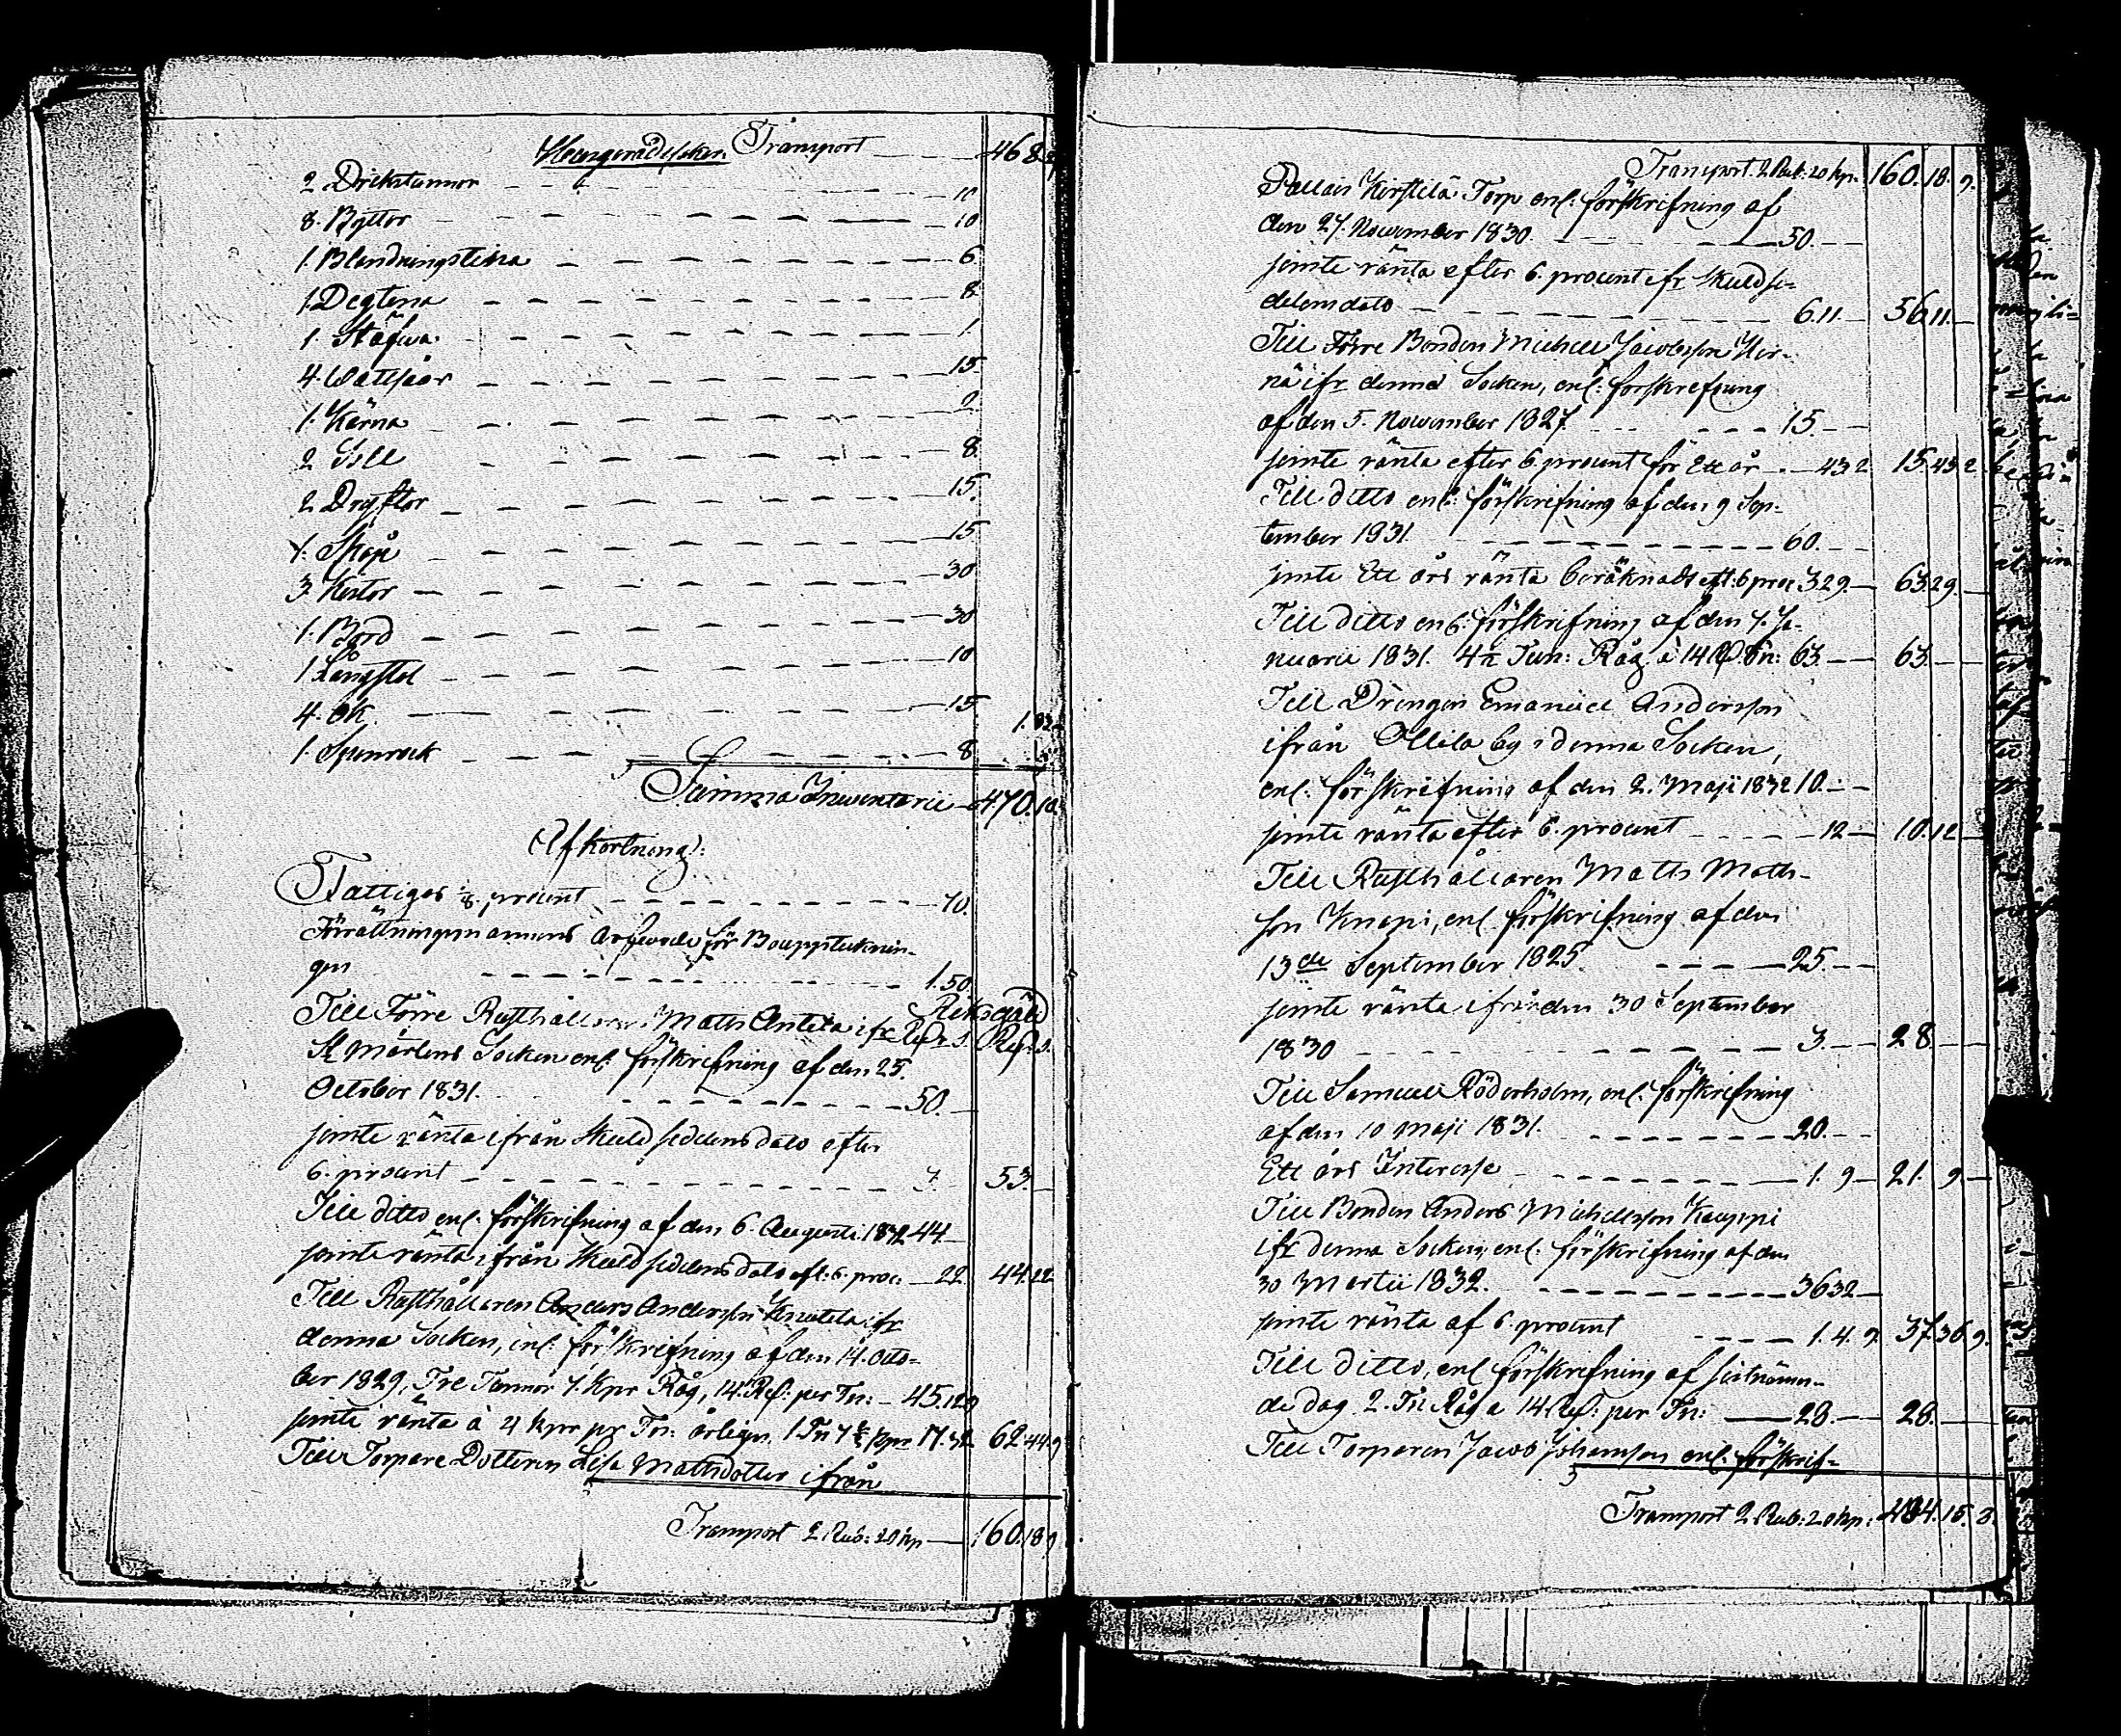 Transport — 468.
Husgerådssaker.
2 Drickstunnor — 10
8. Byttor — 10
1. Blandningstina — 6
1. Degtina — 8
1. Stäfwa — 1.
4. Wattsåar — 15
1. Kärna — 2
2 Såll — 8.
2 Dryftor — 15.
1. Skåp — 15
3. Kistor — 30
1. Bord — 30
1 Långstol — 10
4. Ok — 15
1. Spinrock — 8
Summa Inventarii — 470.10.
Afkortning:
Fattiges 1/8. procent — 10.
Förrättningsmannens arfwode för Bouppteknin-
gen — 1.50.
Riksgäld
Till Förre Rusthållaren Matts Anttila ifr Rdr s. Rdr s.
St Mårtens Socken enl: förskrifning af den 25.
October 1831. — 50. —
jemte ränta ifrån skuldsedelens dato efter
6. procent — 3. 53. —
Till ditto enl: förskrifning af den 6. Augusti 1832 44 —
jemte ränta ifrån skuldsedelens dato eft: 6. proc: — 22. 44.22
Till Rusthållaren Anders Andersson ifr
denna Socken, enl: förskrifning af den 14. Octo-
ber 1829, Tre Tunnor 7. kpr Råg, 14. Rd: per Tn: — 45.12.9
jemte ränta à 4 kpr pr Tn: årligen. 1 Tn 7½ kpr 17.32. 62.44.9
Till Torpare Dotteren Lisa Mattsdotter ifrån
Transport 2. Rub: 20 kp — 160.18.9
Transport 2 Rub: 20 kp. 160. 18. 9.
Pallais Kirstilä Torp enl: förskrifning af
den 27. November 1830. — 50. —
jemte ränta efter 6. procent ifr skuldse-
delens dato — 6.11. — 56.11. —
Till Förre Bonden Michell Jacobsson
ifr denna Socken, enl: förskrifning
af den 5. November 1827. — 15. —
jemte ränta efter 6. procent för Ett år — 43 2 15.43 2.
Till ditto enl: förskrifning af den 9 Sep-
tember 1831. — 60. —
jemte Ett års ränta beräknadt eft: 6 proc 3.29. — 63.29. —
Till ditto enl: förskrifning af den 7. Ja-
nuarii 1831. 4½ Tun: Råg à 14 Rd: Tn: 63. — 63. —
Till Drängen Emanuel Andersson
ifrån Ollila by i denna Socken,
enl: förskrifning af den 2. Maji 1832 10. —
jemte ränta efter 6. procent — 12 — 10.12 —
Till Rusthållaren Matts Matts-
son Knapi, enl: förskrifning af den
13de September 1825. — 25. —
jemte ränta ifrån den 30 September
1830 — 3. — 28. —
Till Samuel Söderholm, enl: förskrifning
af den 10 Maji 1831. — 20. —
Ett års Interesse — 1. 9 — 21. 9 —
Till Bonden Anders Michellsson Kauppi
ifr denna Socken, enl: förskrifning af den
30 Martii 1832. — 36 32 —
jemte ränta af 6. procent — 1. 4. 9. 37.36.9.
Till ditto, enl: förskrifning af sistnämn-
de dag 2. Tn Råg a 14. Rd: per Tn: — 28. — 28. —
Till Torparen Jacob Johansson enl: förskrif-
Transport 2. Rub: 20 kp: 484. 15. 8.